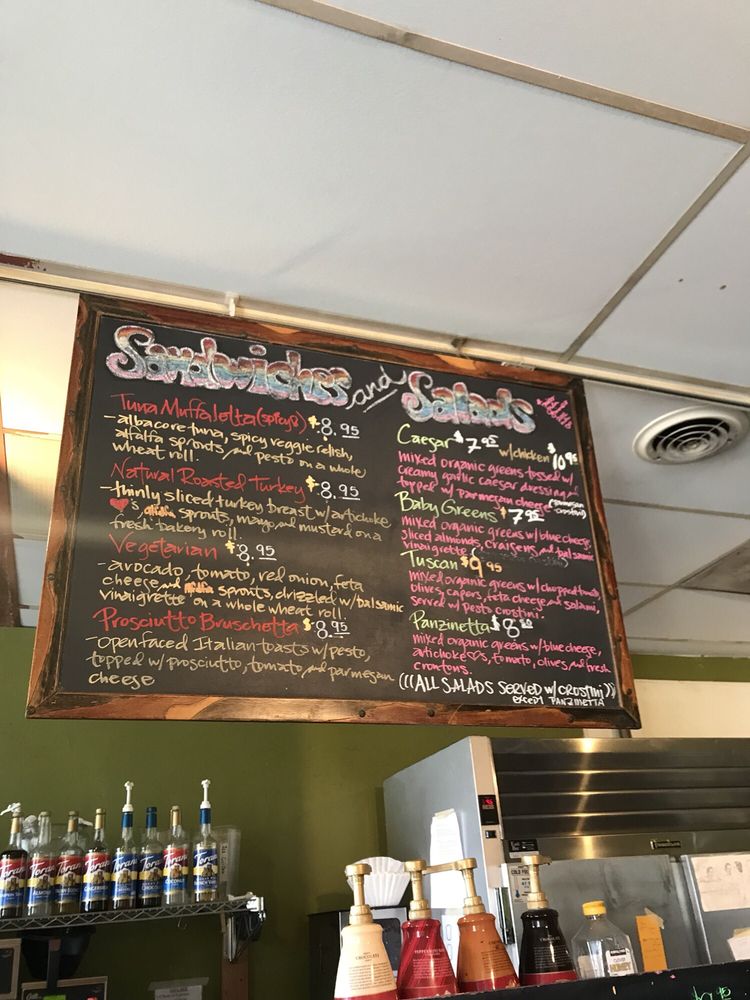 Sandwiches and Salads
Tuna Muffaletta (spicy) $8.95
- albacore tuna, spicy veggie relish,
alfalfa sprouts and pesto on a whole
wheat roll.
Natural Roasted Turkey $8.95
- thinly sliced turkey breast w/ artichoke
♥'s, alfalfa sprouts, mayo, and mustard on a
fresh bakery roll.
Vegetarian $8.95
- avocado, tomato, red onion, feta
cheese and alfalfa sprouts, drizzled w/ balsamic
vinaigrette on a whole wheat roll
Prosciutto Bruschetta $8.95
- openfaced Italian toasts w/ pesto,
topped w/ prosciutto, tomato, and parmesan
cheese
Caesar $7.95 w/chicken $10.95
mixed organic greens tossed w/
creamy garlic caesar dressing and
topped w/ parmesan cheese (parmesan
crostini)
Baby Greens $7.95
mixed organic greens w/ blue cheese,
sliced almonds, craisens, and balsamic
vinaigrette
Tuscan $9.95
mixed organic greens w/ chopped tomato,
olives, capers, feta cheese, and salami,
served w/ pesto crostini.
Panzinetta $8
mixed organic greens w/ blue cheese,
artichoke ♡s, tomato, olives, and fresh
croutons.
(((ALL SALADS SERVED w/ CROSTINI))
EXCEPT PANZINETTA
TORANI
TORANI
TORANI
TORANI
TORANI
TORANI
TORANI
TORANI
CHOCOLATE
CHOCOLATE
HONEY